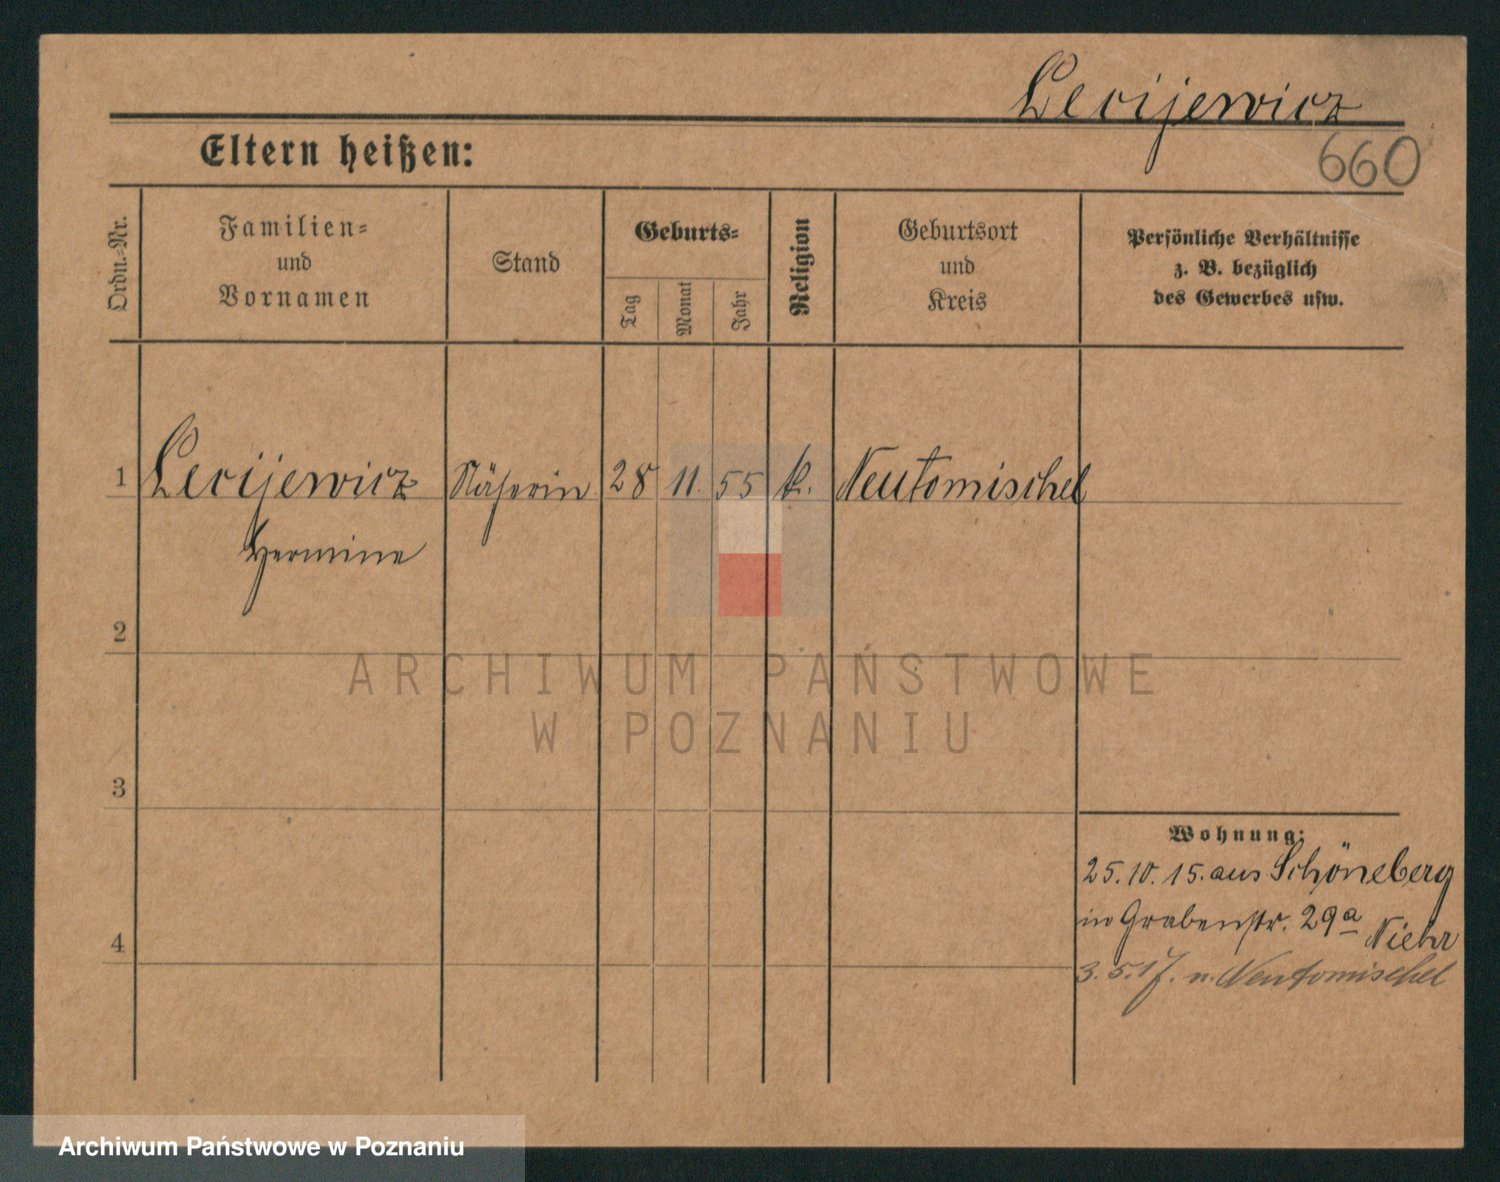 Lecijewicz
660
Eltern heißen:
Ordn.-Nr.
Familien-
und
Vornamen
Stand
Geburts-
Tag
Monat
Jahr
Religion
Geburtsort
und
Kreis
Persönliche Verhältnisse
z. B. bezüglich
des Gewerbes usw.
1 Lecijewicz Näherin 28 11. 55 k. Neutomischel
Hermine
2
3
4
Wohnung:
25.10.15. aus Schöneberg
in Grabenstr. 29a
3.5.17. n. Neutomischel
ARCHIWUM PAŃSTWOWE
W POZNANIU
Archiwum Państwowe w Poznaniu